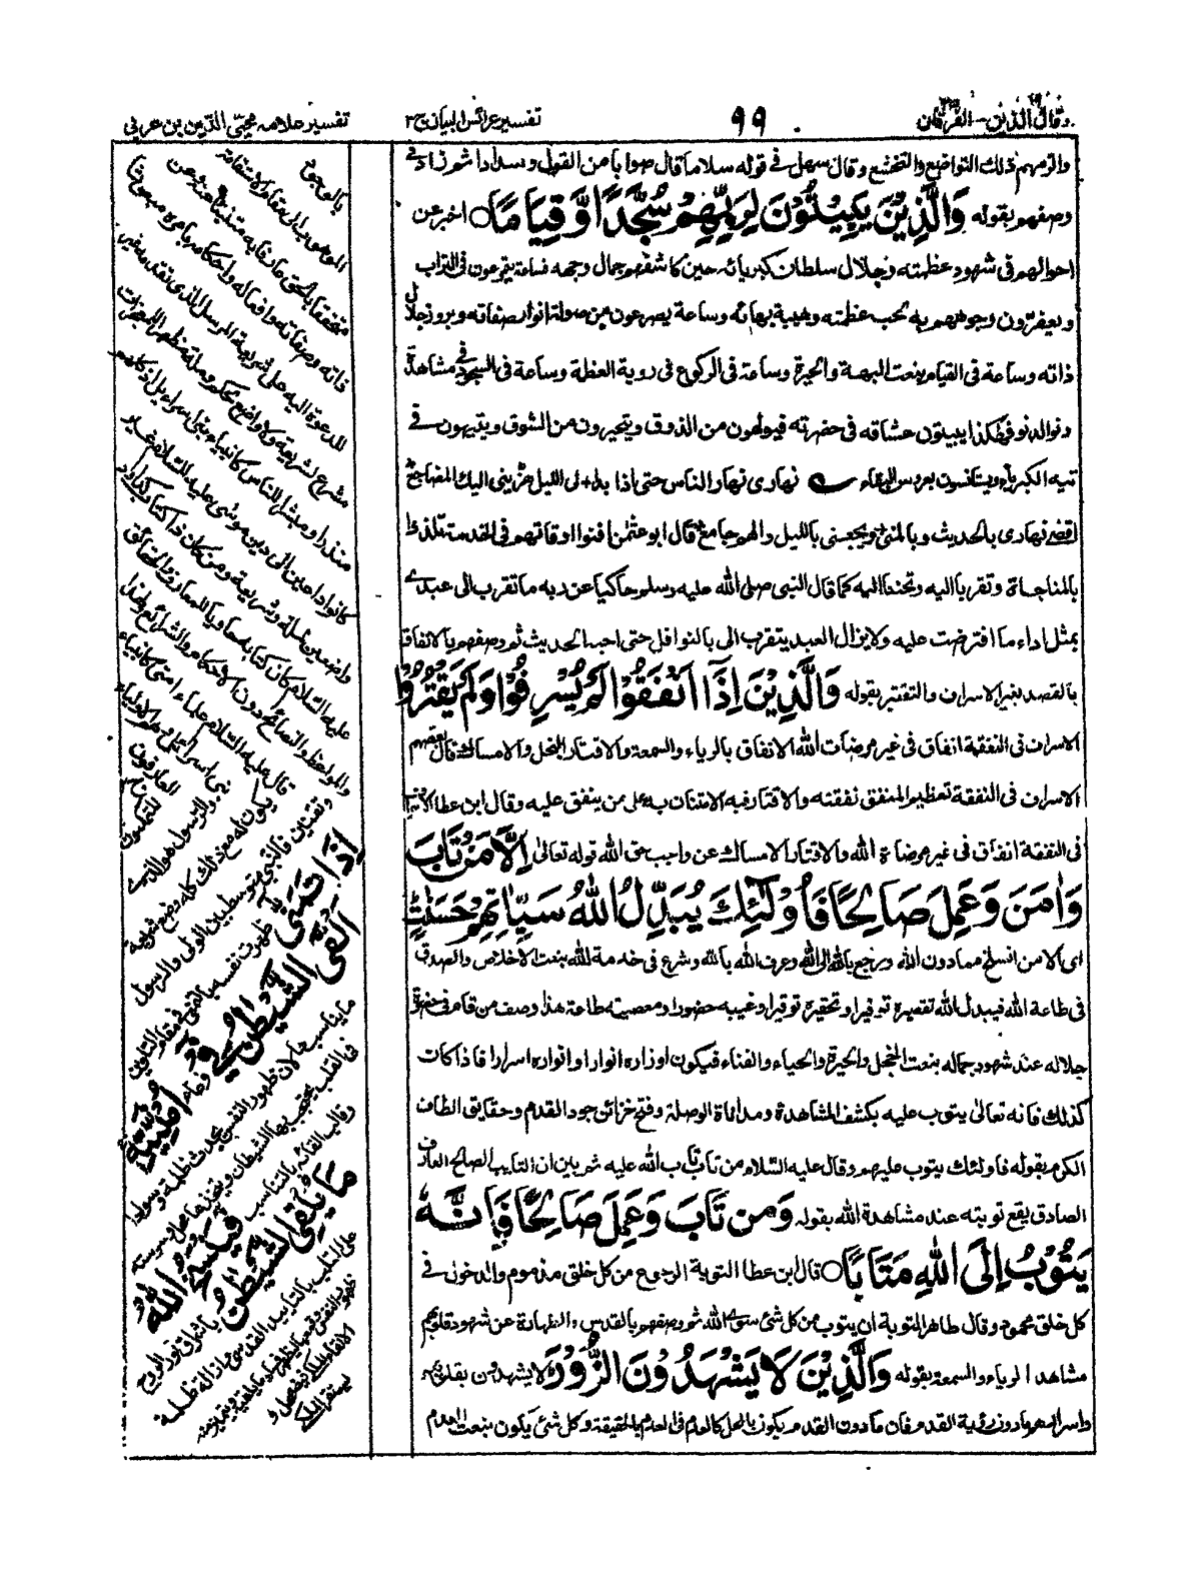 وقال الذين - الفرقان
٩٩
تفسير عرائس البيان ج٢
تفسير علامه محيى الدين بن عربى
والزمهم ذلك التواضع والتخشع وقال سهل فى قوله سلاما قال صوابا من القول وسدادا ثم زاد فى
وصفهم بقوله وَالَّذِيْنَ يَبِيْتُوْنَ لِرَبِّهِمْ سُجَّدًا وَّقِيَامًا ○ اخبر عن
احوالهم فى شهود عظمته وجلال سلطان كبريائه حين كاشفهم جمال وجهه فساعة يتمرغون فى التراب
ويعفرون وجوههم به تحت عظمته وهيبة بهائه وساعة يصرعون من صولة انوار صفاته وبروز جلال
ذاته وساعة فى القيام بنعت البهتة والحيرة وساعة فى الركوع فى روية العظمة وساعة فى السجود فى مشاهدة
دنو الدنو فهكذا يبيتون عشاقه فى حضرته فيولهون من الذوق ويتحيرون من الشوق ويتيهون فى
تيه الكبرياء ويستانسون بعروس البقاء نهارى نهار الناس حتى اذا بدا + لى الليل هزتنى اليك المضاجع
اقضى نهارى بالحديث وبالمنى + ويجمعنى بالليل والهم جامع قال ابو عثمن افنوا اوقاتهم فى الخدمة تلذذا
بالمناجاة وتقربا اليه وتحننا اليه كما قال النبى صلى الله عليه وسلم حاكيا عن ربه ما تقرب الى عبدى
بمثل اداء ما افترضت عليه ولا يزال العبد يتقرب الى بالنوافل حتى احبه الحديث ثم وصفهم بالانفاق
بالقصد بغير الاسراف والتقتير بقوله وَالَّذِيْنَ اِذَا اَنْفَقُوْا لَمْ يُسْرِفُوْا وَلَمْ يَقْتُرُوْا
الاسراف فى النفقة انفاق فى غير مرضات الله الانفاق بالرياء والسمعة والاقتار البخل والامساك قال بعضهم
الاسراف فى النفقة تعظيم المنفق نفقته والاقتار فيه الامتنان به على من ينفق عليه وقال ابن عطا الاسراف
فى النفقة انفاق فى غير مرضاة الله والاقتار الامساك عن واجب حق الله قوله تعالىٰ اِلَّا مَنْ تَابَ
وَاٰمَنَ وَعَمِلَ صَالِحًا فَاُولٰٓئِكَ يُبَدِّلُ اللهُ سَيِّاٰتِهِمْ حَسَنٰتٍ
اى الا من انسلخ مما دون الله ورجع بالله الى الله وعرف الله بالله وشرع فى خدمة الله بنعت الاخلاص والصدق
فى طاعة الله فيبدل الله تقصيره توفيرا وتحقيره توقيرا وغيبه حضورا ومعصيته طاعة هذا وصف من قام فى حضرة
جلاله عند شهود جماله بنعت الخجل والحيرة والحياء والفناء فيكون اوزاره انوارا وانواره اسرارا فاذا كان
كذلك فانه تعالىٰ يتوب عليه بكشف المشاهدة ومداناة الوصلة وفتح خزائن جود القدم وحقايق الطاف
الكرم بقوله فاولئك يتوب عليهم وقال عليه السلام من تاب تاب الله عليه ثم بين ان التايب الصالح العارف
الصادق يقع توبته عند مشاهدة الله بقوله وَمَنْ تَابَ وَعَمِلَ صَالِحًا فَاِنَّهٗ
يَتُوْبُ اِلَى اللهِ مَتَابًا ○ قال ابن عطا التوبة الرجوع من كل خلق مذموم والدخول فى
كل خلق محمود وقال طاهر التوبة ان يتوب من كل شئ سوى الله ثم وصفهم بالقدس والطهارة عن شهود قلوبهم
مشاهد الرياء والسمعة بقوله وَالَّذِيْنَ لَا يَشْهَدُوْنَ الزُّوْرَ لا يشهدون بقلوبهم
واسرارهم دون رؤية القدم فان ما دون القدم يكون بالحل كالعدم فى العدم بالحقيقة وكل شئ يكون بنعت العدم
بالوجود
الموهوب الى مقام الاستقامة
متحققا بالحق عارفا به متنبئا عنه وعن
ذاته وصفاته وافعاله واحكامه بامره مبعوثا
للدعوة اليه على شريعة المرسل الذى تقدمه غير
مشرع لشريعة ولا واضع لحكم وملة مظهر المعجزات
منذرا ومبشرا للناس كانبياء بنى اسرائيل اذ كلهم
كانوا داعين الى دين موسى عليه السلام غير
واضعين لملة وشريعة ومن كان ذا كتاب كداود
عليه السلام كان كتابه حاويا للمعارف والحقائق
والمواعظ والنصائح دون الاحكام والشرائع ولهذا
قال عليه السلام علماء امتى كانبياء
بنى اسرائيل وهم الاولياء
العارفون
المتمكنون
والرسول هو الذى
يكون له مع ذلك كله وضع شريعة
وتقنين فالنبى متوسط بين الولى والرسول
اِذَا تَمَنّٰى ظهرت نفسه بالتمنى فى مقام التلوين
اَلْقَى الشَّيْطٰنُ فِيْ وعاء اُمْنِيَّتِهٖ
ما يناسبها لان ظهور النفس يحدث ظلمة وسوادا
فى القلب يحتجب بها الشيطان
وقالب القائه بالتناسب
فَيَنْسَخُ اللهُ مَا يُلْقِى الشَّيْطٰنُ باشراق نور الروح
على القلب بالتاييد القدسى وازالة ظلمة
ظهور النفس
الالقاء الملكى